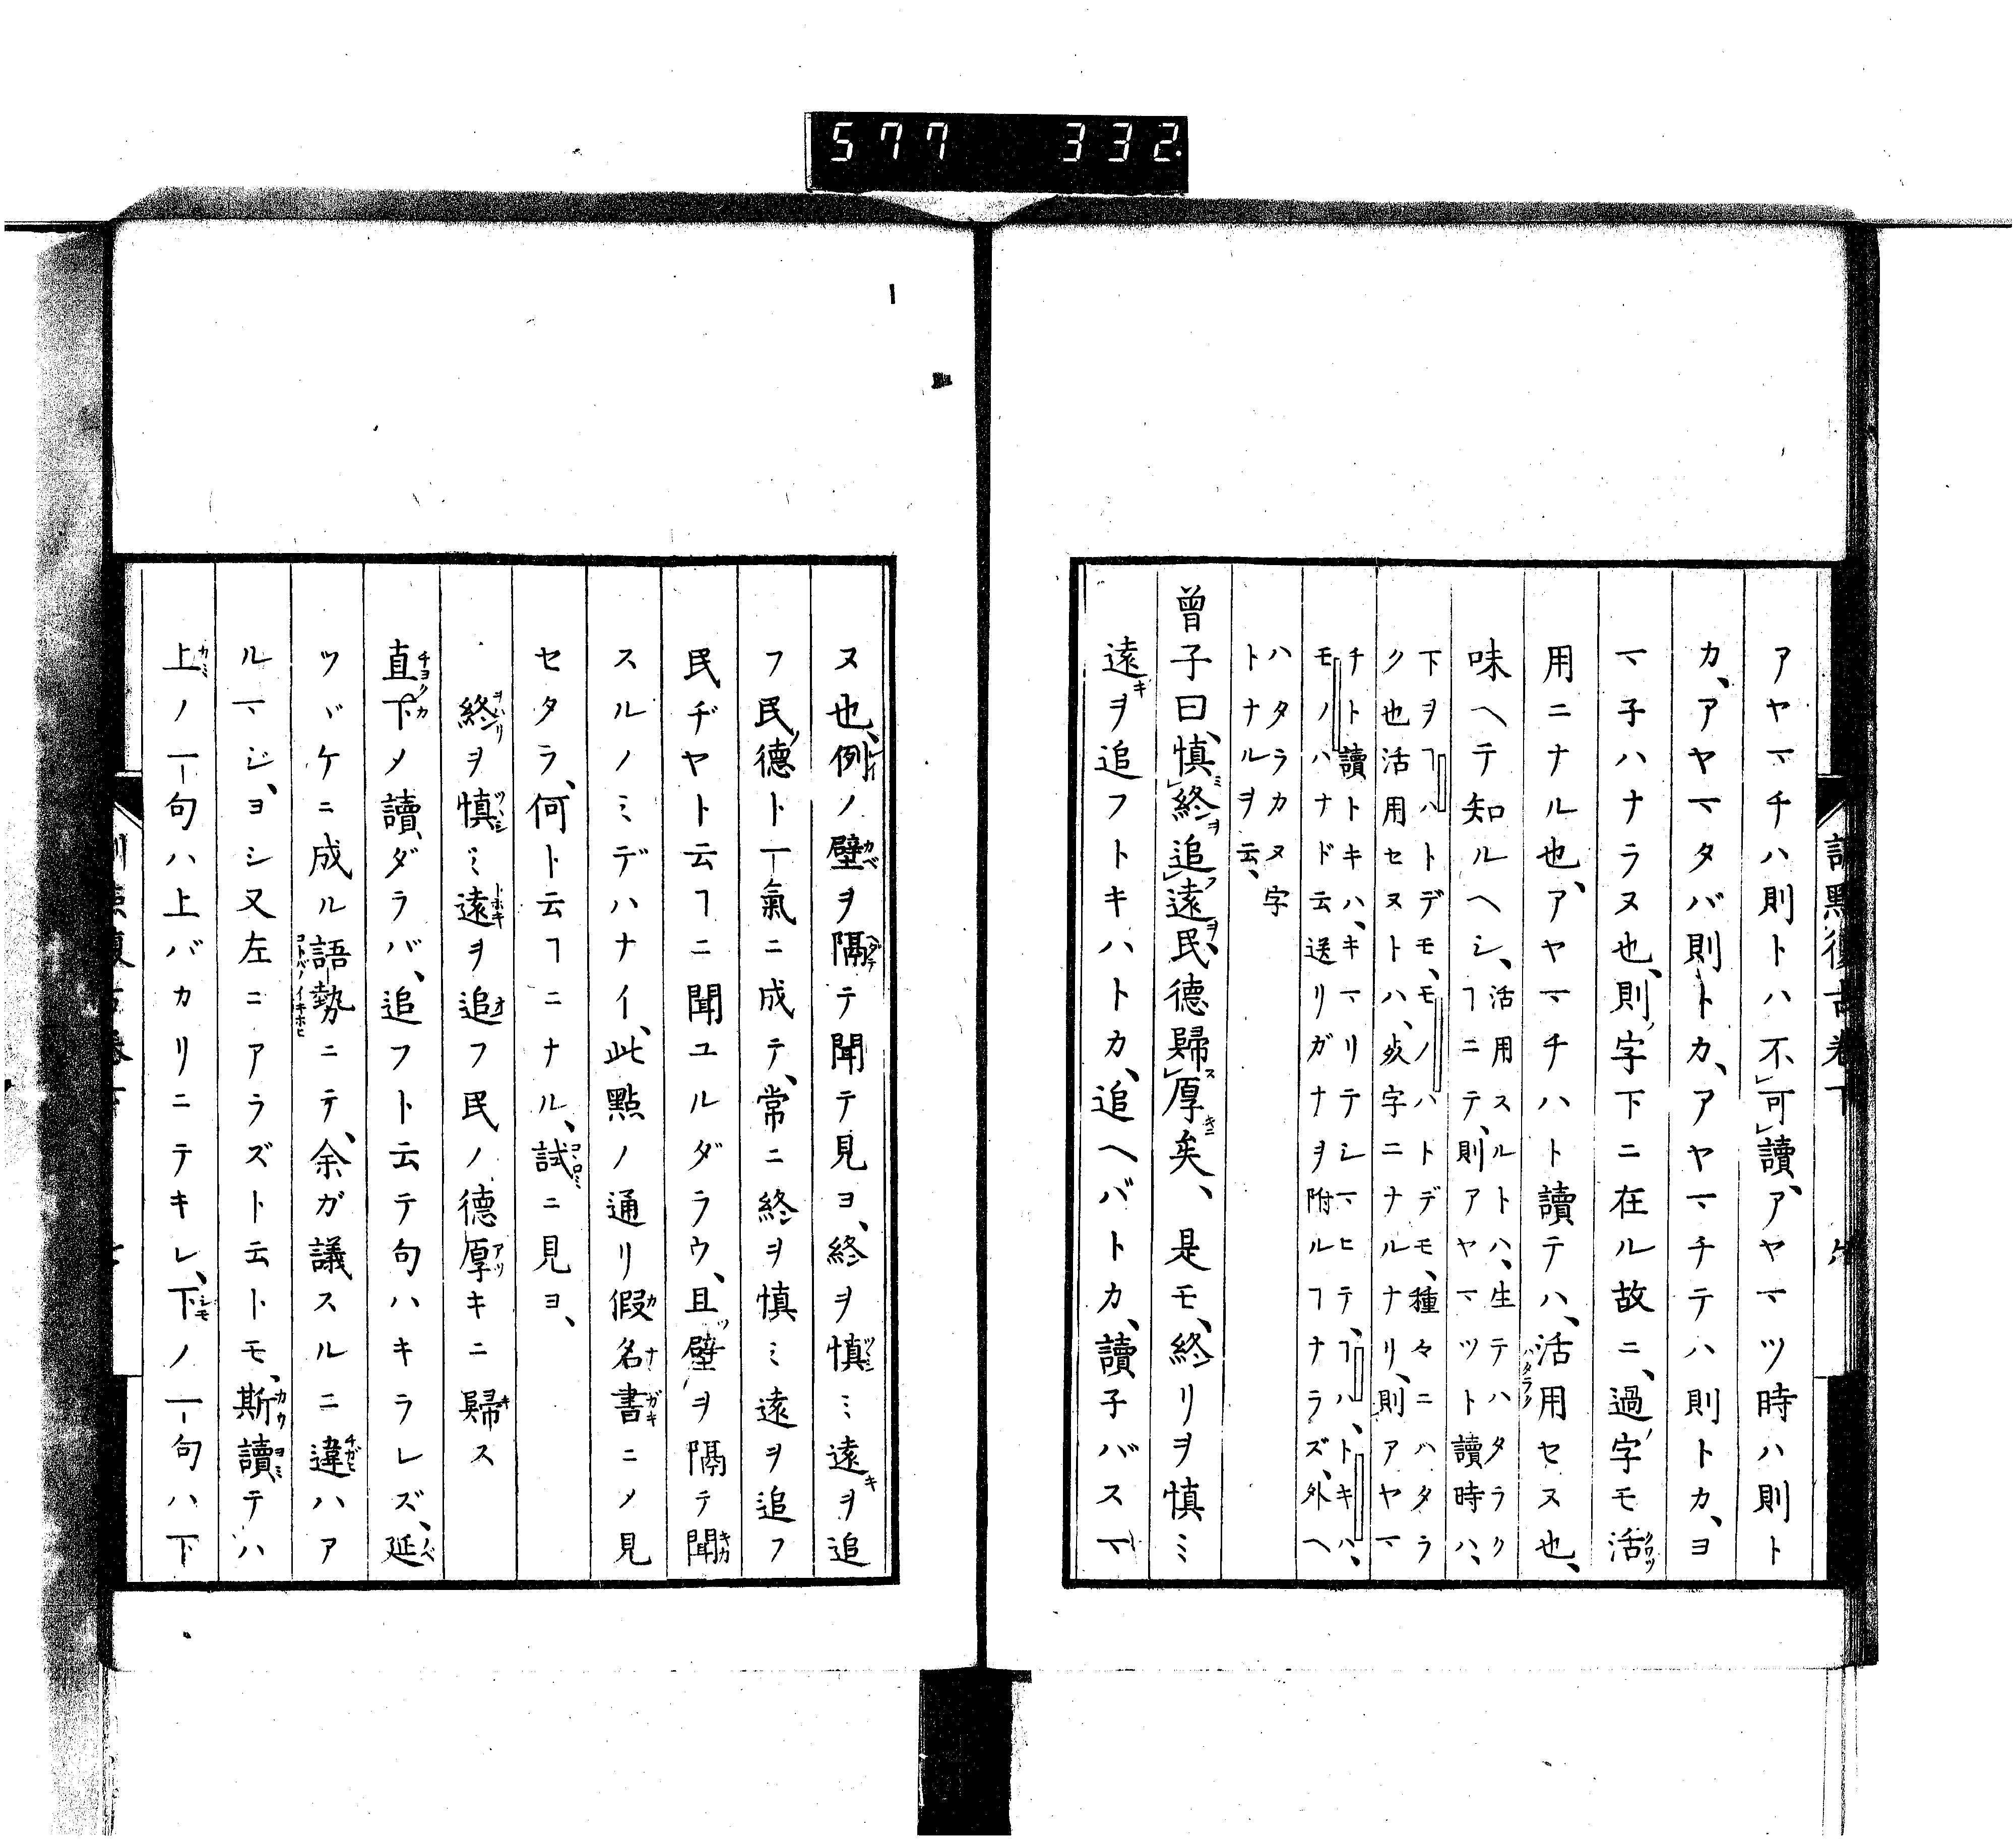 577 332.
訓點復古卷下
アヤマチハ則トハ不可讀、アヤマツ時ハ則ト
カ、アヤマタバ則トカ、アヤマチテハ則トカ、ヨ
マ子ハナラヌ也、則ノ字下ニ在ル故ニ、過ノ字モ活
用ニナル也、アヤマチハト讀テハ、活用セヌ也、
味ヘテ知ルヘシ、活用スルトハ、生テハタラク
ヿニテ、則アヤマツト讀時ハ、
下ヲヿハトデモ、モノハトデモ、種々ニハタラ
ク也活用セヌトハ、死字ニナルナリ、則アヤマ
チト讀トキハ、キマリテシマヒテ、ヿハ、トキハ、
モノハナドド云送リガナヲ附ルヿナラズ、外ヘ
ハタラカヌ字
トナルヲ云、
曾子曰、慎終追遠、民德歸厚矣、是モ、終リヲ慎ミ
遠キヲ追フトキハトカ、追ヘバトカ、讀子バスマ
ヌ也、例ノ壁ヲ隔テ聞テ見ヨ、終ヲ慎ミ遠キヲ追
フ民ノ德ト一氣ニ成テ、常ニ終ヲ慎ミ遠ヲ追フ
民ヂヤト云ヿニ聞ユルダラウ、且ツ壁ヲ隔テ聞
スルノミデハナイ、此點ノ通リ假名書ニメ見
セタラ、何ト云ヿニナル、試ニ見ヨ、
終ヲ慎ミ遠ヲ追フ民ノ德厚キニ歸ス
直下メ讀ダラバ、追フト云テ句ハキラレズ、延
ツヾケニ成ル語勢ニテ、余ガ議スルニ違ハア
ルマジ、ヨシ又左ニアラズト云トモ、斯讀テハ
上ノ一句ハ上バカリニテキレ、下ノ一句ハ下